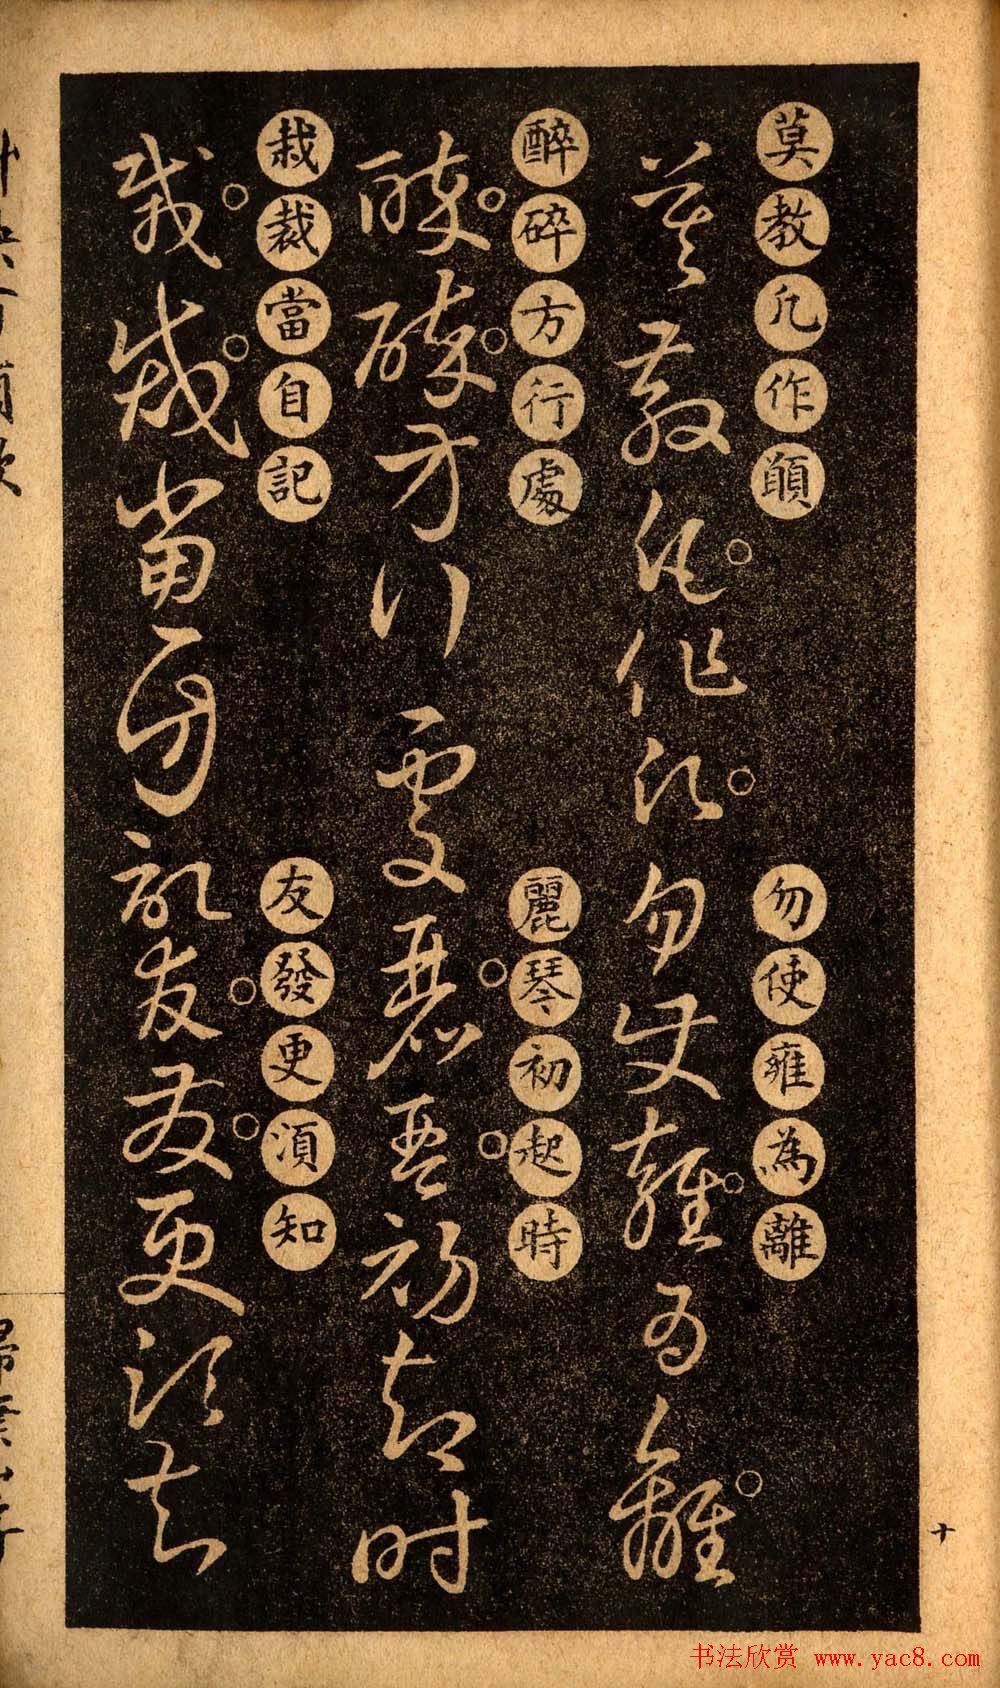 莫教凡作願
勿使雍為離
醉碎方行處
麗琴初起時
栽裁當自記
友發更須知
十
书法欣赏 www.yac8.com